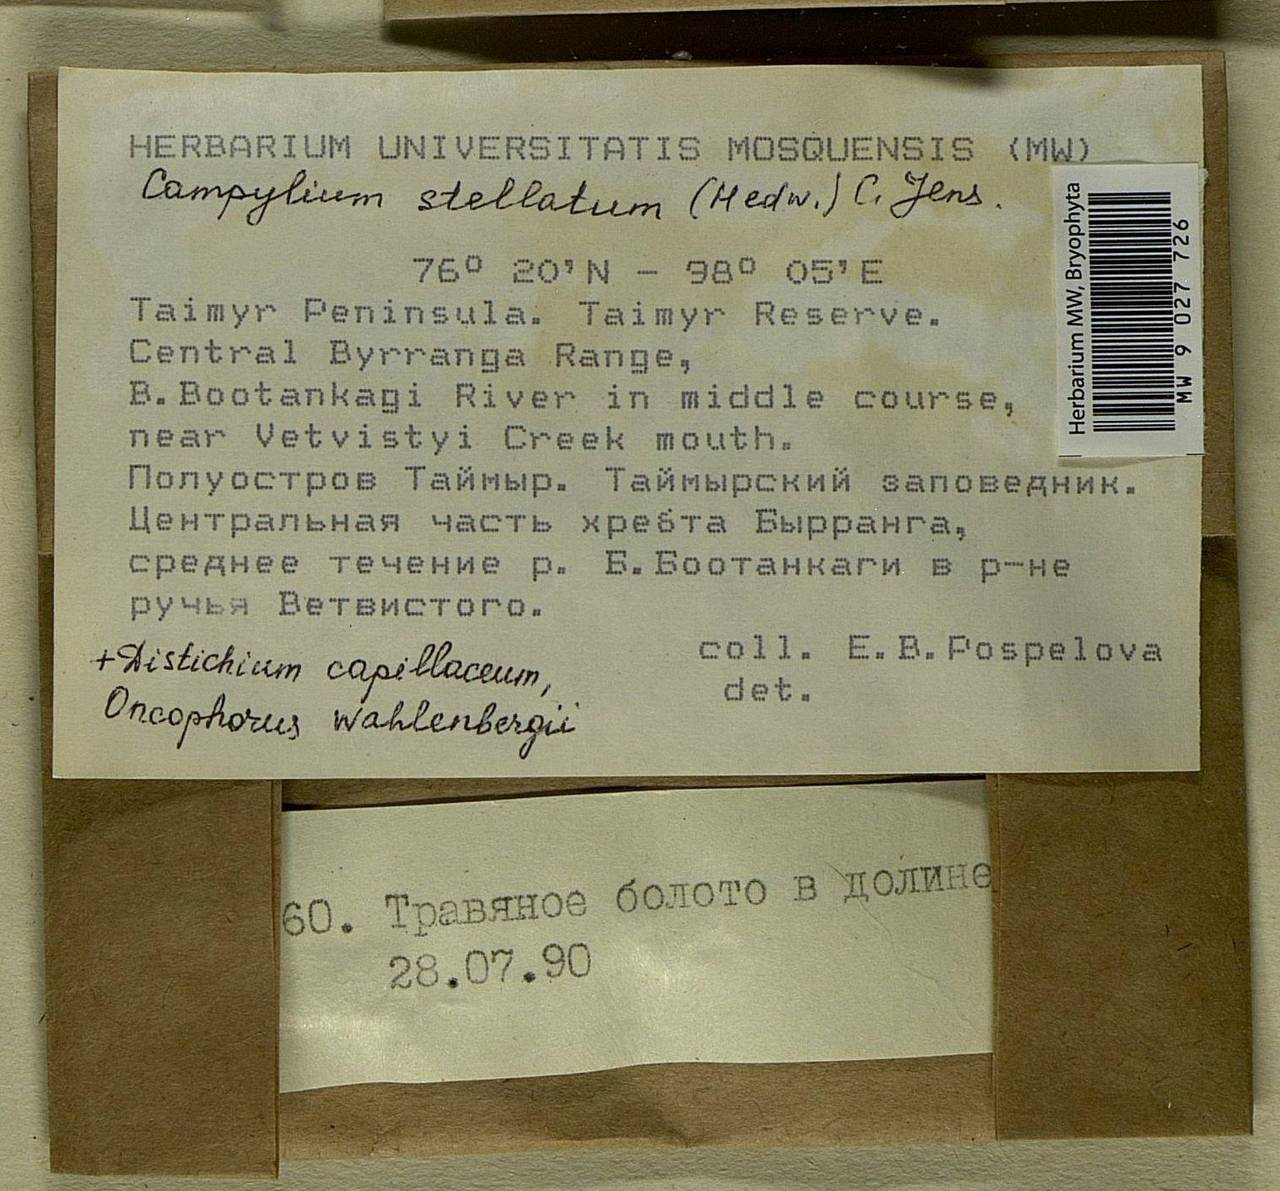 HERBARIUM UNIVERSITATIS MOSQUENSIS (MW)
Campylium stellatum (Hedw.) C. Jens.
76° 20'N - 98° 05'E
Taimyr Peninsula. Taimyr Reserve.
Central Byrranga Range,
B.Bootankagi River in middle course,
near Vetvistyi Creek mouth.
Полуостров Таймыр. Таймырский заповедник.
Центральная часть хребта Бырранга,
среднее течение р. Б.Боотанкаги в р-не
ручья Ветвистого.
+Distichium capillaceum,
Oncophorus wahlenbergii
coll. E.B.Pospelova
det.
Herbarium MW, Bryophyta
MW 9 027 726
60. Травяное болото в долине
28.07.90